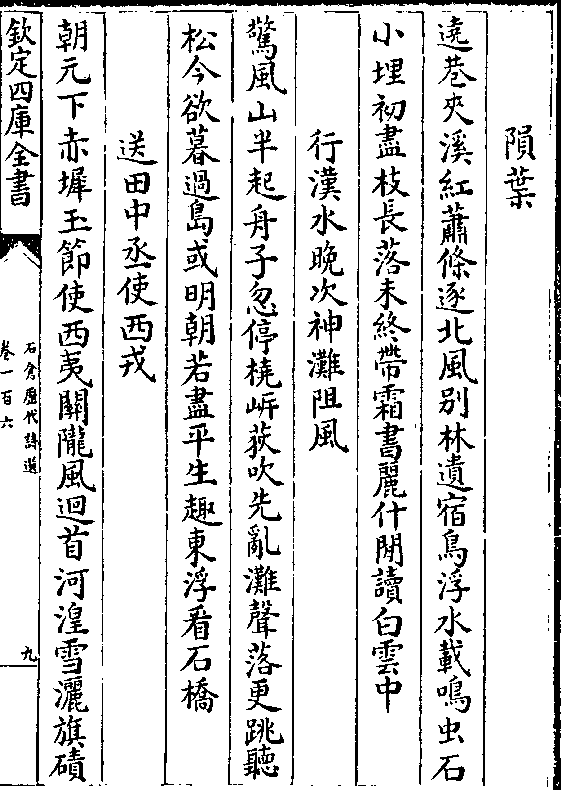 隕葉
遶巷夾溪紅蕭條逐北風别林遺宿鳥浮水載鳴虫石
小埋初盡枝長落未終帶霜書麗什閒讀白雲中
行漢水晚次神灘阻風
驚風山半起舟子忽停橈岍荻吹先亂灘聲落更跳聽
松今欲暮過島或明朝若盡平生趣東浮看石橋
送田中丞使西戎
朝元下赤墀玉節使西夷關隴風迴首河湟雪灑旗磧
欽定四庫全書
石倉歷代詩選
卷一百六
九